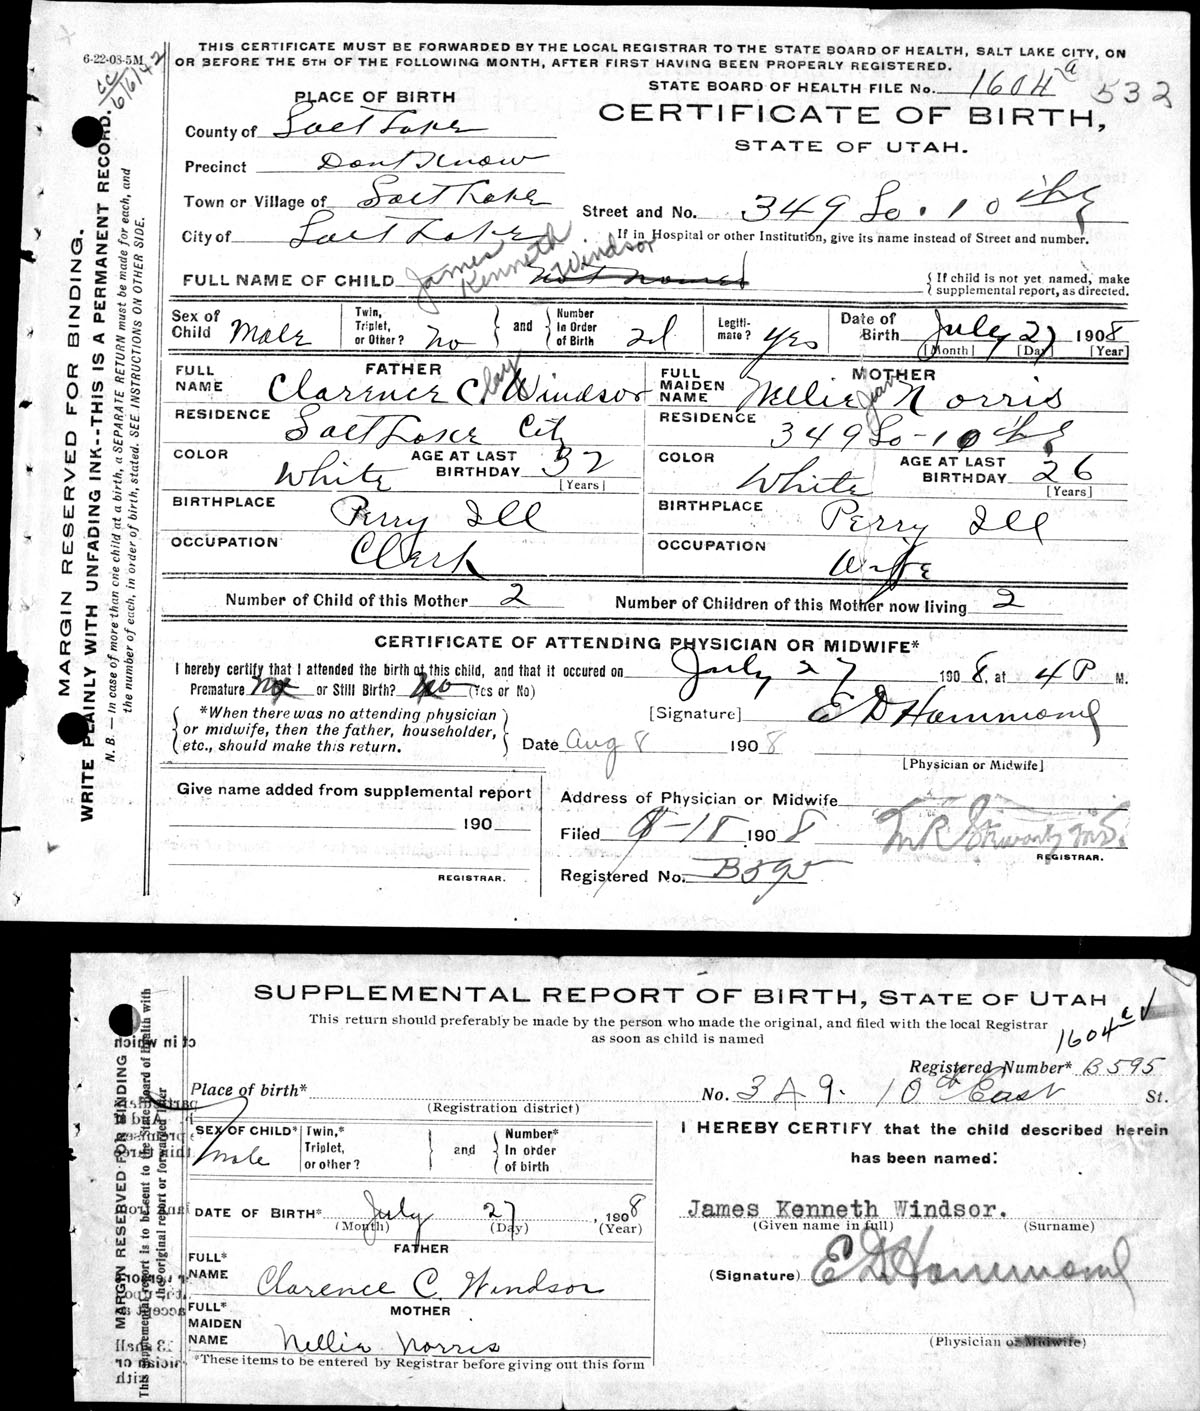 6-22-08-5M
cc 6/6/42
THIS CERTIFICATE MUST BE FORWARDED BY THE LOCAL REGISTRAR TO THE STATE BOARD OF HEALTH, SALT LAKE CITY, ON
OR BEFORE THE 5TH OF THE FOLLOWING MONTH, AFTER FIRST HAVING BEEN PROPERLY REGISTERED.
STATE BOARD OF HEALTH FILE No. 1604 a 532
PLACE OF BIRTH
CERTIFICATE OF BIRTH,
STATE OF UTAH.
County of Salt Lake
Precinct Dont Know
Town or Village of Salt Lake
Street and No. 349 So. 10
City of Salt Lake
If in Hospital or other Institution, give its name instead of Street and number.
FULL NAME OF CHILD James Kenneth Windsor Not named
{If child is not yet named, make
supplemental report, as directed.
Sex of Child Male
Twin, Triplet, or Other? No
and
Number In Order of Birth 2d
Legiti- mate? Yes
Date of Birth July 27 1908
[Month] [Day] [Year]
FATHER
FULL NAME Clarence Clay Windsor
MOTHER
FULL MAIDEN NAME Nellie Jean Norris
RESIDENCE Salt Lake City
RESIDENCE 349 So-10
COLOR White AGE AT LAST BIRTHDAY 32 [Years]
COLOR White AGE AT LAST BIRTHDAY 26 [Years]
BIRTHPLACE Perry Ill
BIRTHPLACE Perry Ill
OCCUPATION Clerk
OCCUPATION Wife
Number of Child of this Mother 2 Number of Children of this Mother now living 2
CERTIFICATE OF ATTENDING PHYSICIAN OR MIDWIFE*
I hereby certify that I attended the birth of this child, and that it occured on July 27 1908, at 4 P M.
Premature No or Still Birth? No (Yes or No)
{*When there was no attending physician
or midwife, then the father, householder,
etc., should make this return.}
[Signature] E D Hammond
Date Aug 8 1908
[Physician or Midwife]
Give name added from supplemental report
190
REGISTRAR.
Address of Physician or Midwife
Filed 8-18 1908
REGISTRAR.
Registered No. B595
MARGIN RESERVED FOR BINDING.
WRITE PLAINLY WITH UNFADING INK--THIS IS A PERMANENT RECORD.
N. B. — In case of more than one child at a birth, a SEPARATE RETURN must be made for each, and
the number of each, in order of birth, stated. SEE INSTRUCTIONS ON OTHER SIDE.
SUPPLEMENTAL REPORT OF BIRTH, STATE OF UTAH
This return should preferably be made by the person who made the original, and filed with the local Registrar
as soon as child is named
1604 a
Registered Number* B595
Place of birth*
(Registration district)
No. 349. 10th East St.
SEX OF CHILD* Male
Twin,* Triplet, or other?
and
Number* In order of birth
I HEREBY CERTIFY that the child described herein
has been named:
DATE OF BIRTH* July 27, 1908
(Month) (Day) (Year)
James Kenneth Windsor.
(Given name in full) (Surname)
FATHER
FULL* NAME Clarence C. Windsor
(Signature) E D Hammond
MOTHER
FULL* MAIDEN NAME Nellie Norris
(Physician or Midwife)
*These items to be entered by Registrar before giving out this form
MARGIN RESERVED FOR BINDING
This supplemental report is to be sent to the State Board of Health with
the original report or forwarded later